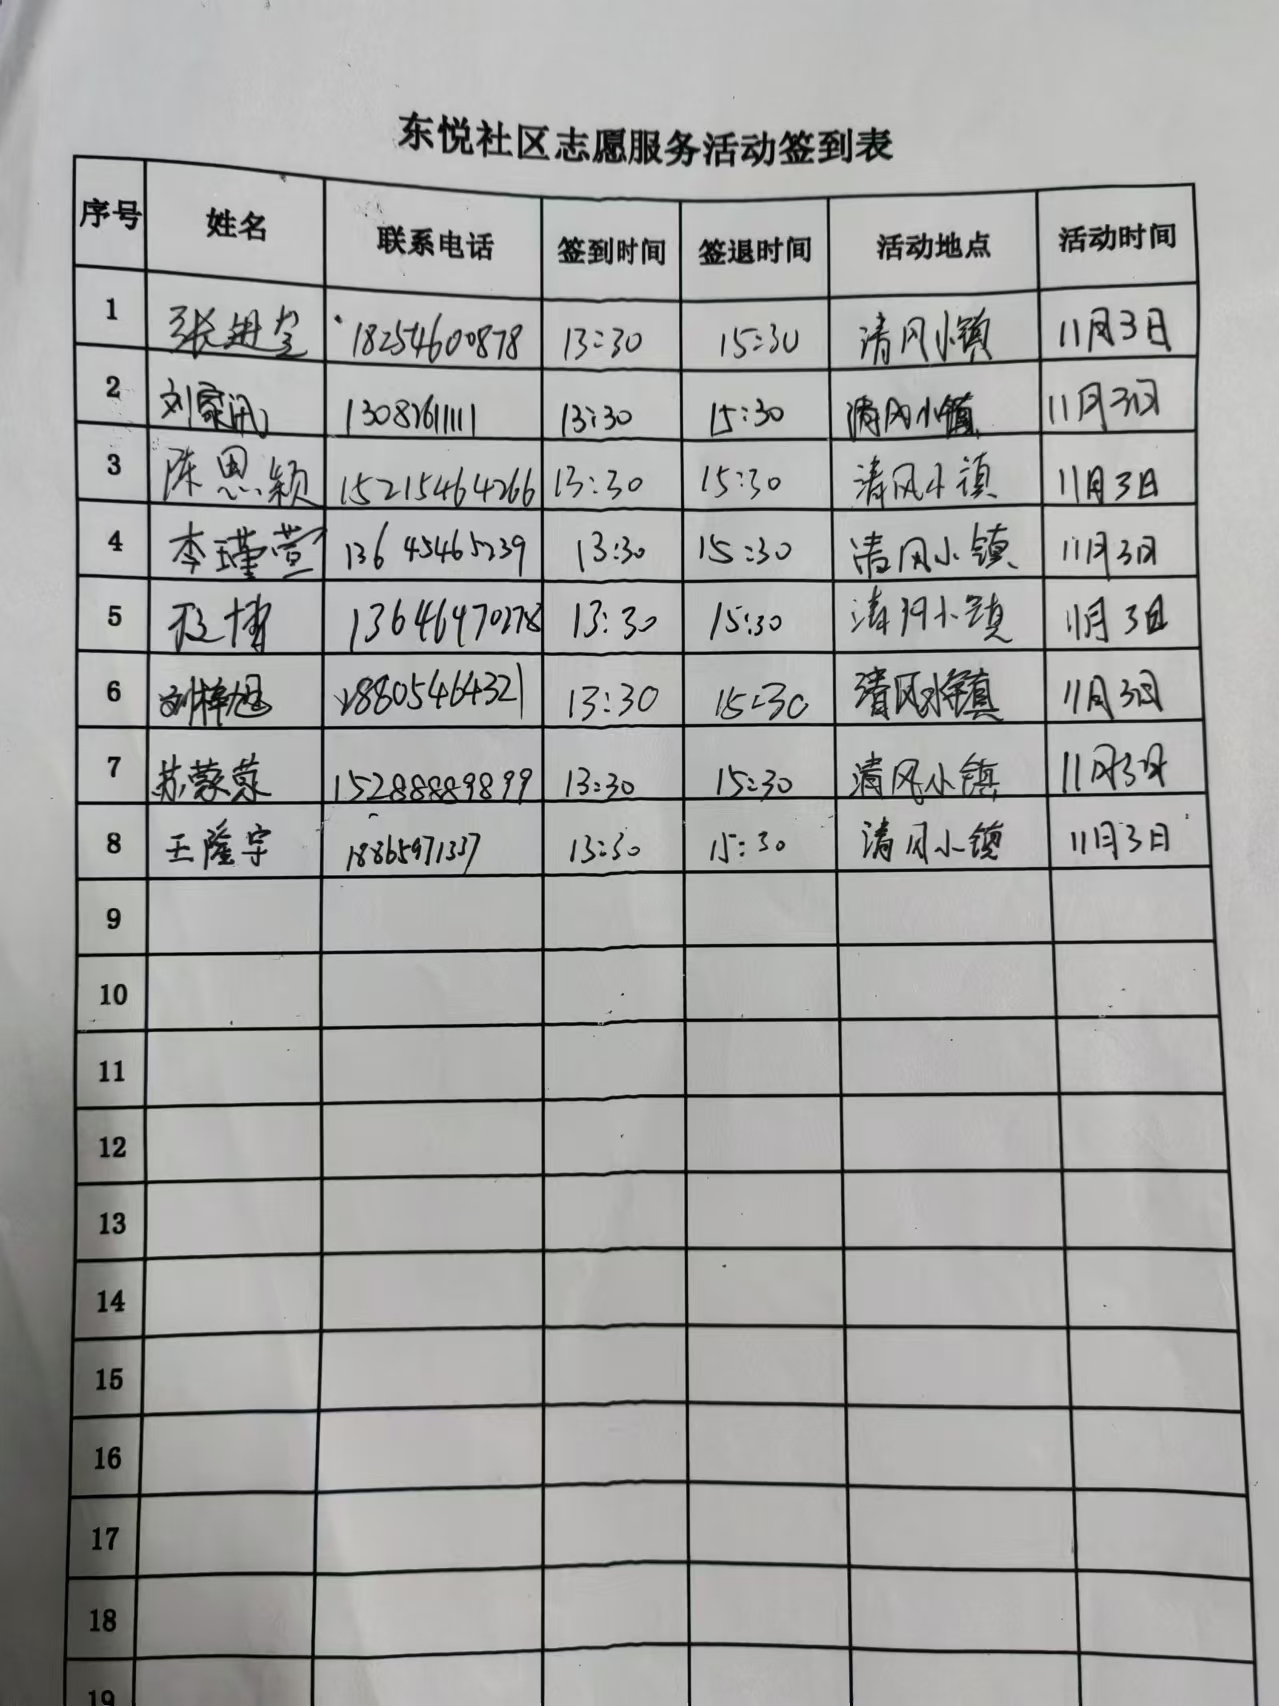 东悦社区志愿服务活动签到表
序号 姓名 联系电话 签到时间 签退时间 活动地点 活动时间
1 18254600878 13:30 15:30 清风小镇 11月3日
2 刘家讯 13087611111 13:30 15:30 清风小镇 11月3日
3 陈思颖 15215464266 13:30 15:30 清风小镇 11月3日
4 李瑾萱 13645465239 13:30 15:30 清风小镇 11月3日
5 13646470278 13:30 15:30 清风小镇 11月3日
6 刘梓旭 18805464321 13:30 15:30 清风小镇 11月3日
7 苏蒙蒙 15288889899 13:30 15:30 清风小镇 11月3日
8 王隆宇 18865971337 13:30 15:30 清风小镇 11月3日
9
10
11
12
13
14
15
16
17
18
19